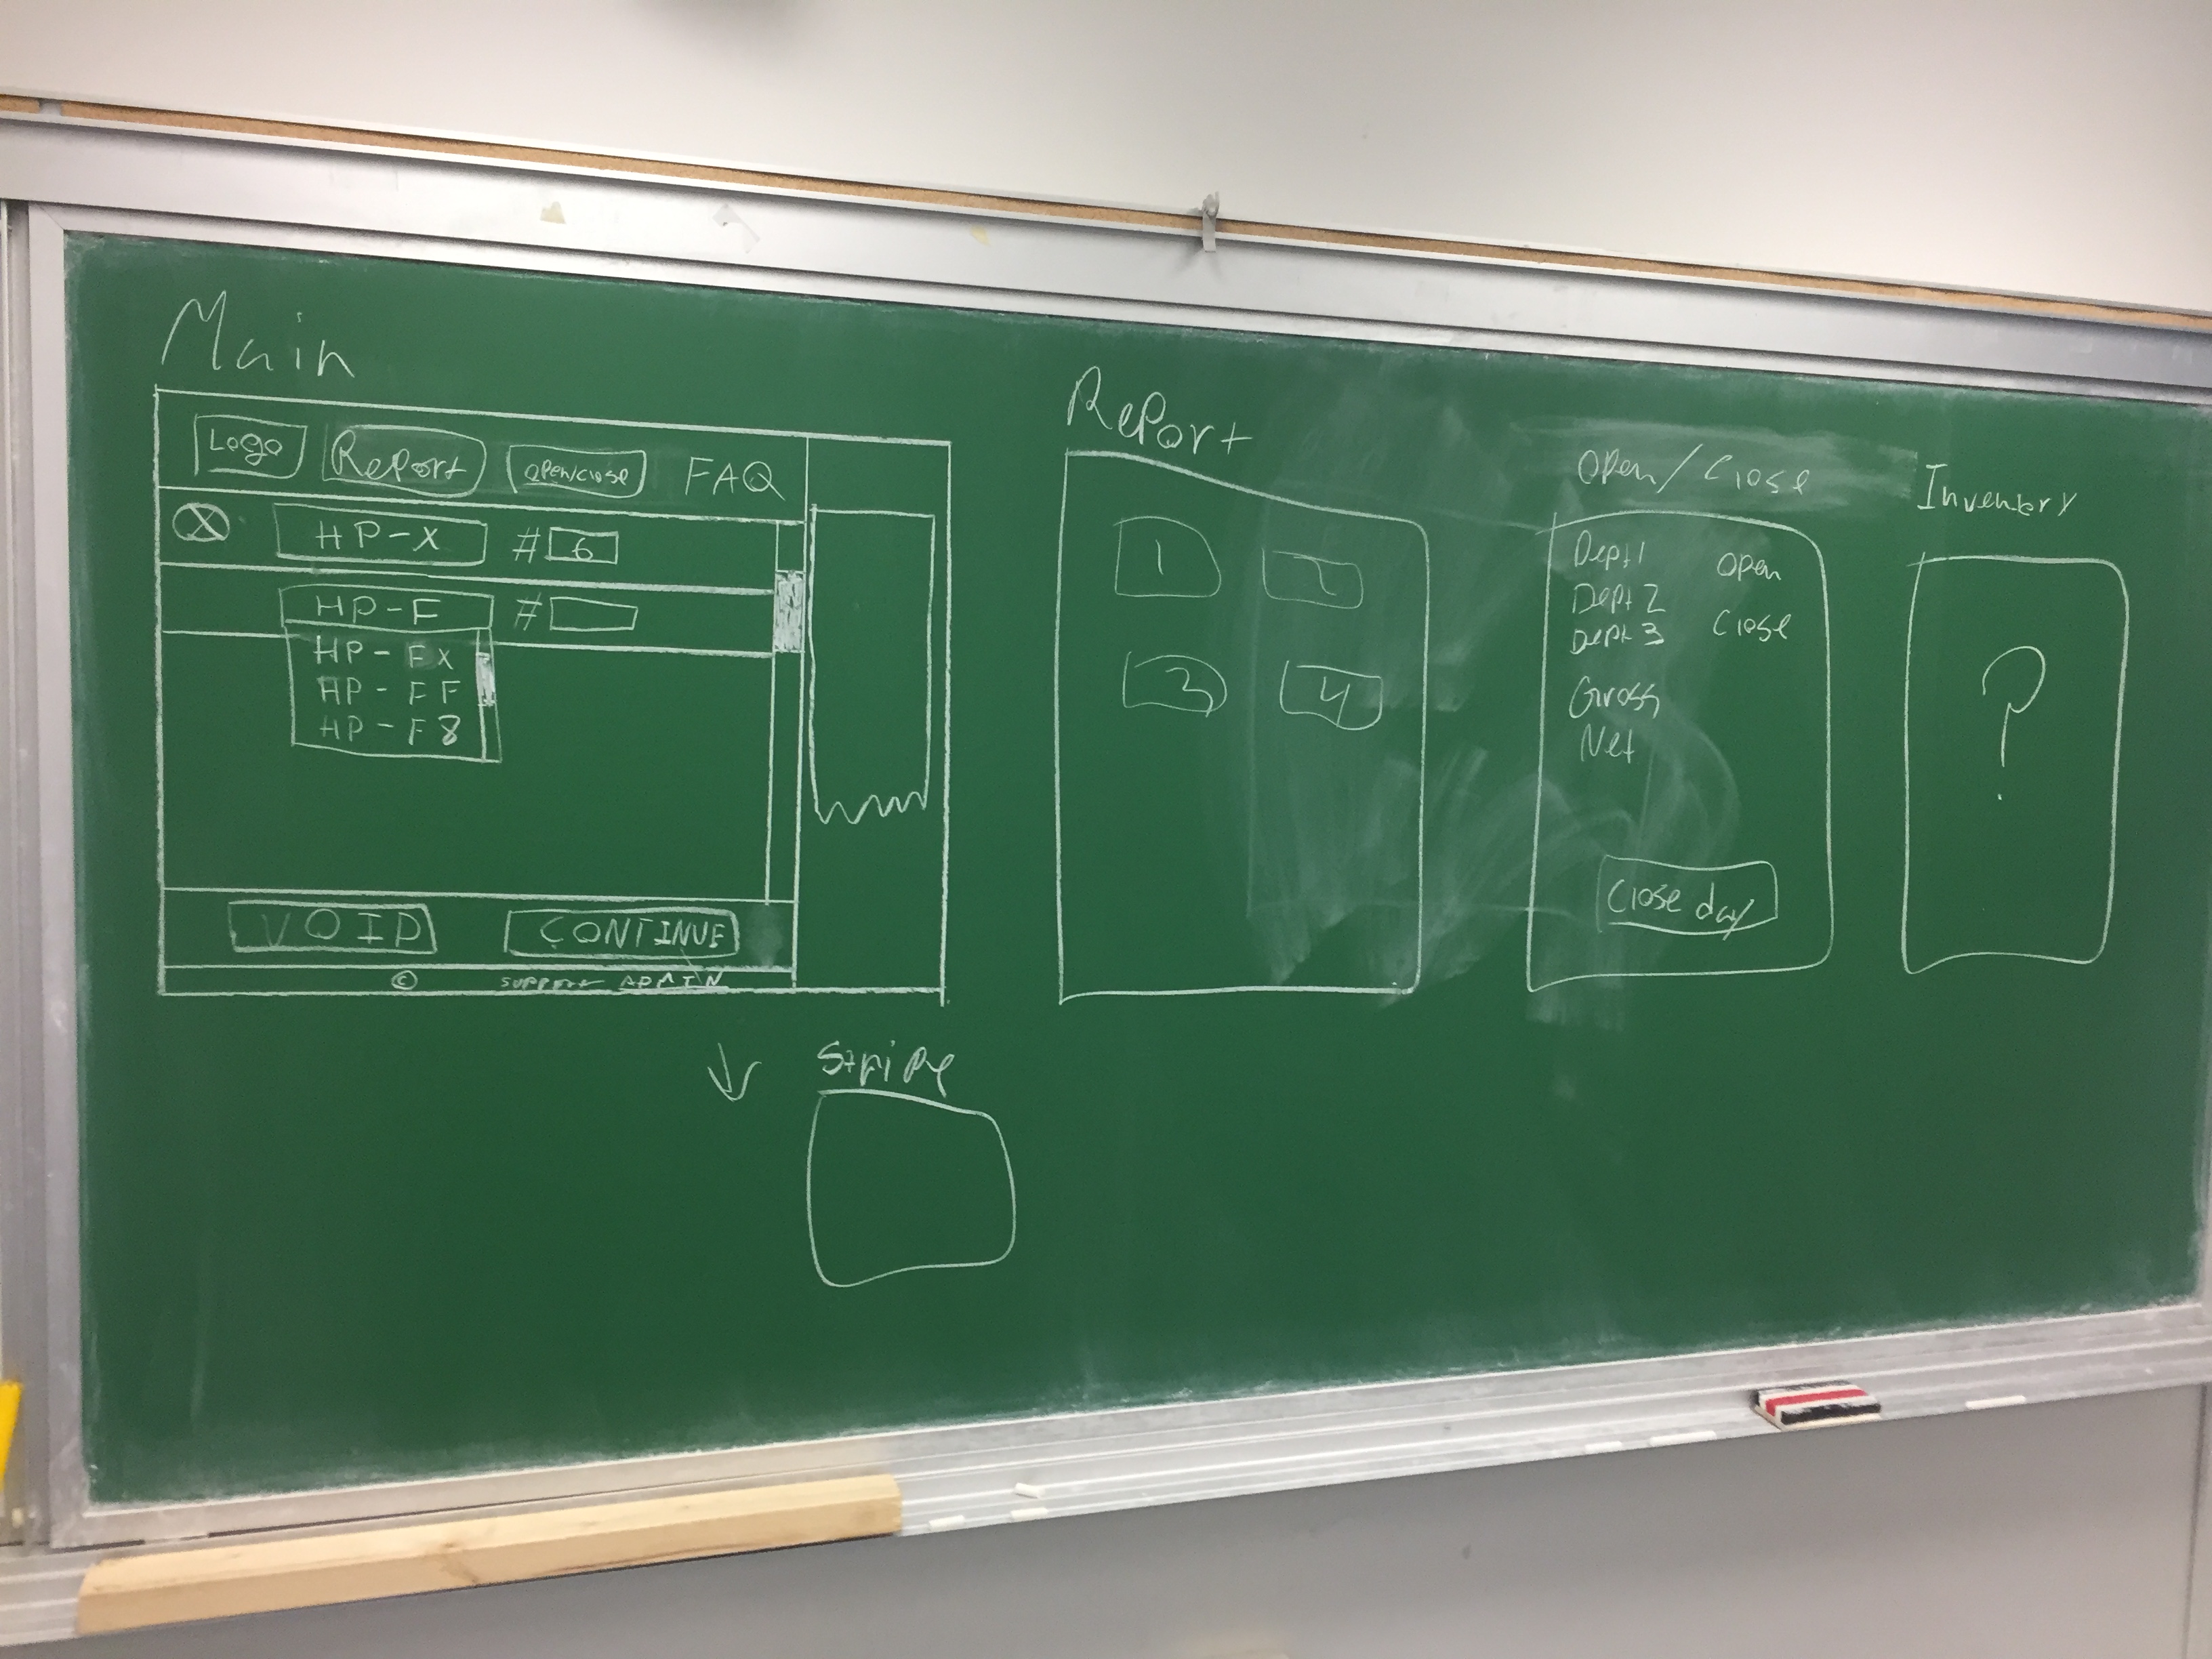 Main
Logo Report open/close FAQ
X HP-X # 6
HP-F #
HP-FX
HP-FF
HP-F8
VOID CONTINUE
© support ADMIN
Stripe
Report
1 2
3 4
Open/Close
Dept 1 open
Dept 2
Dept 3 close
Gross
Net
Close day
Inventory
?